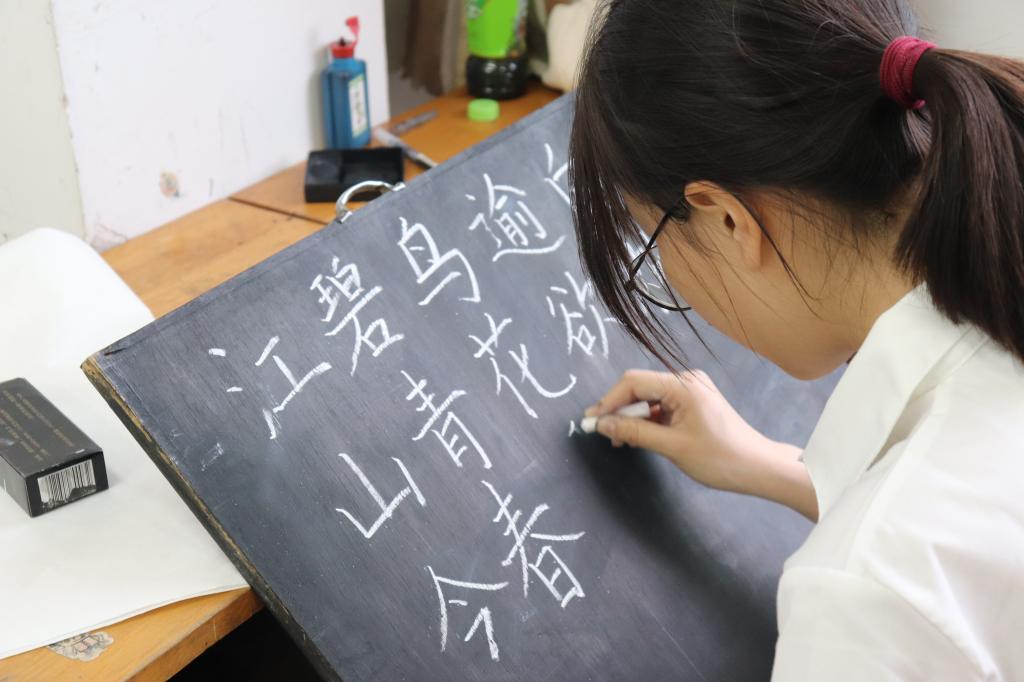 江碧鸟逾
山青花欲
今春